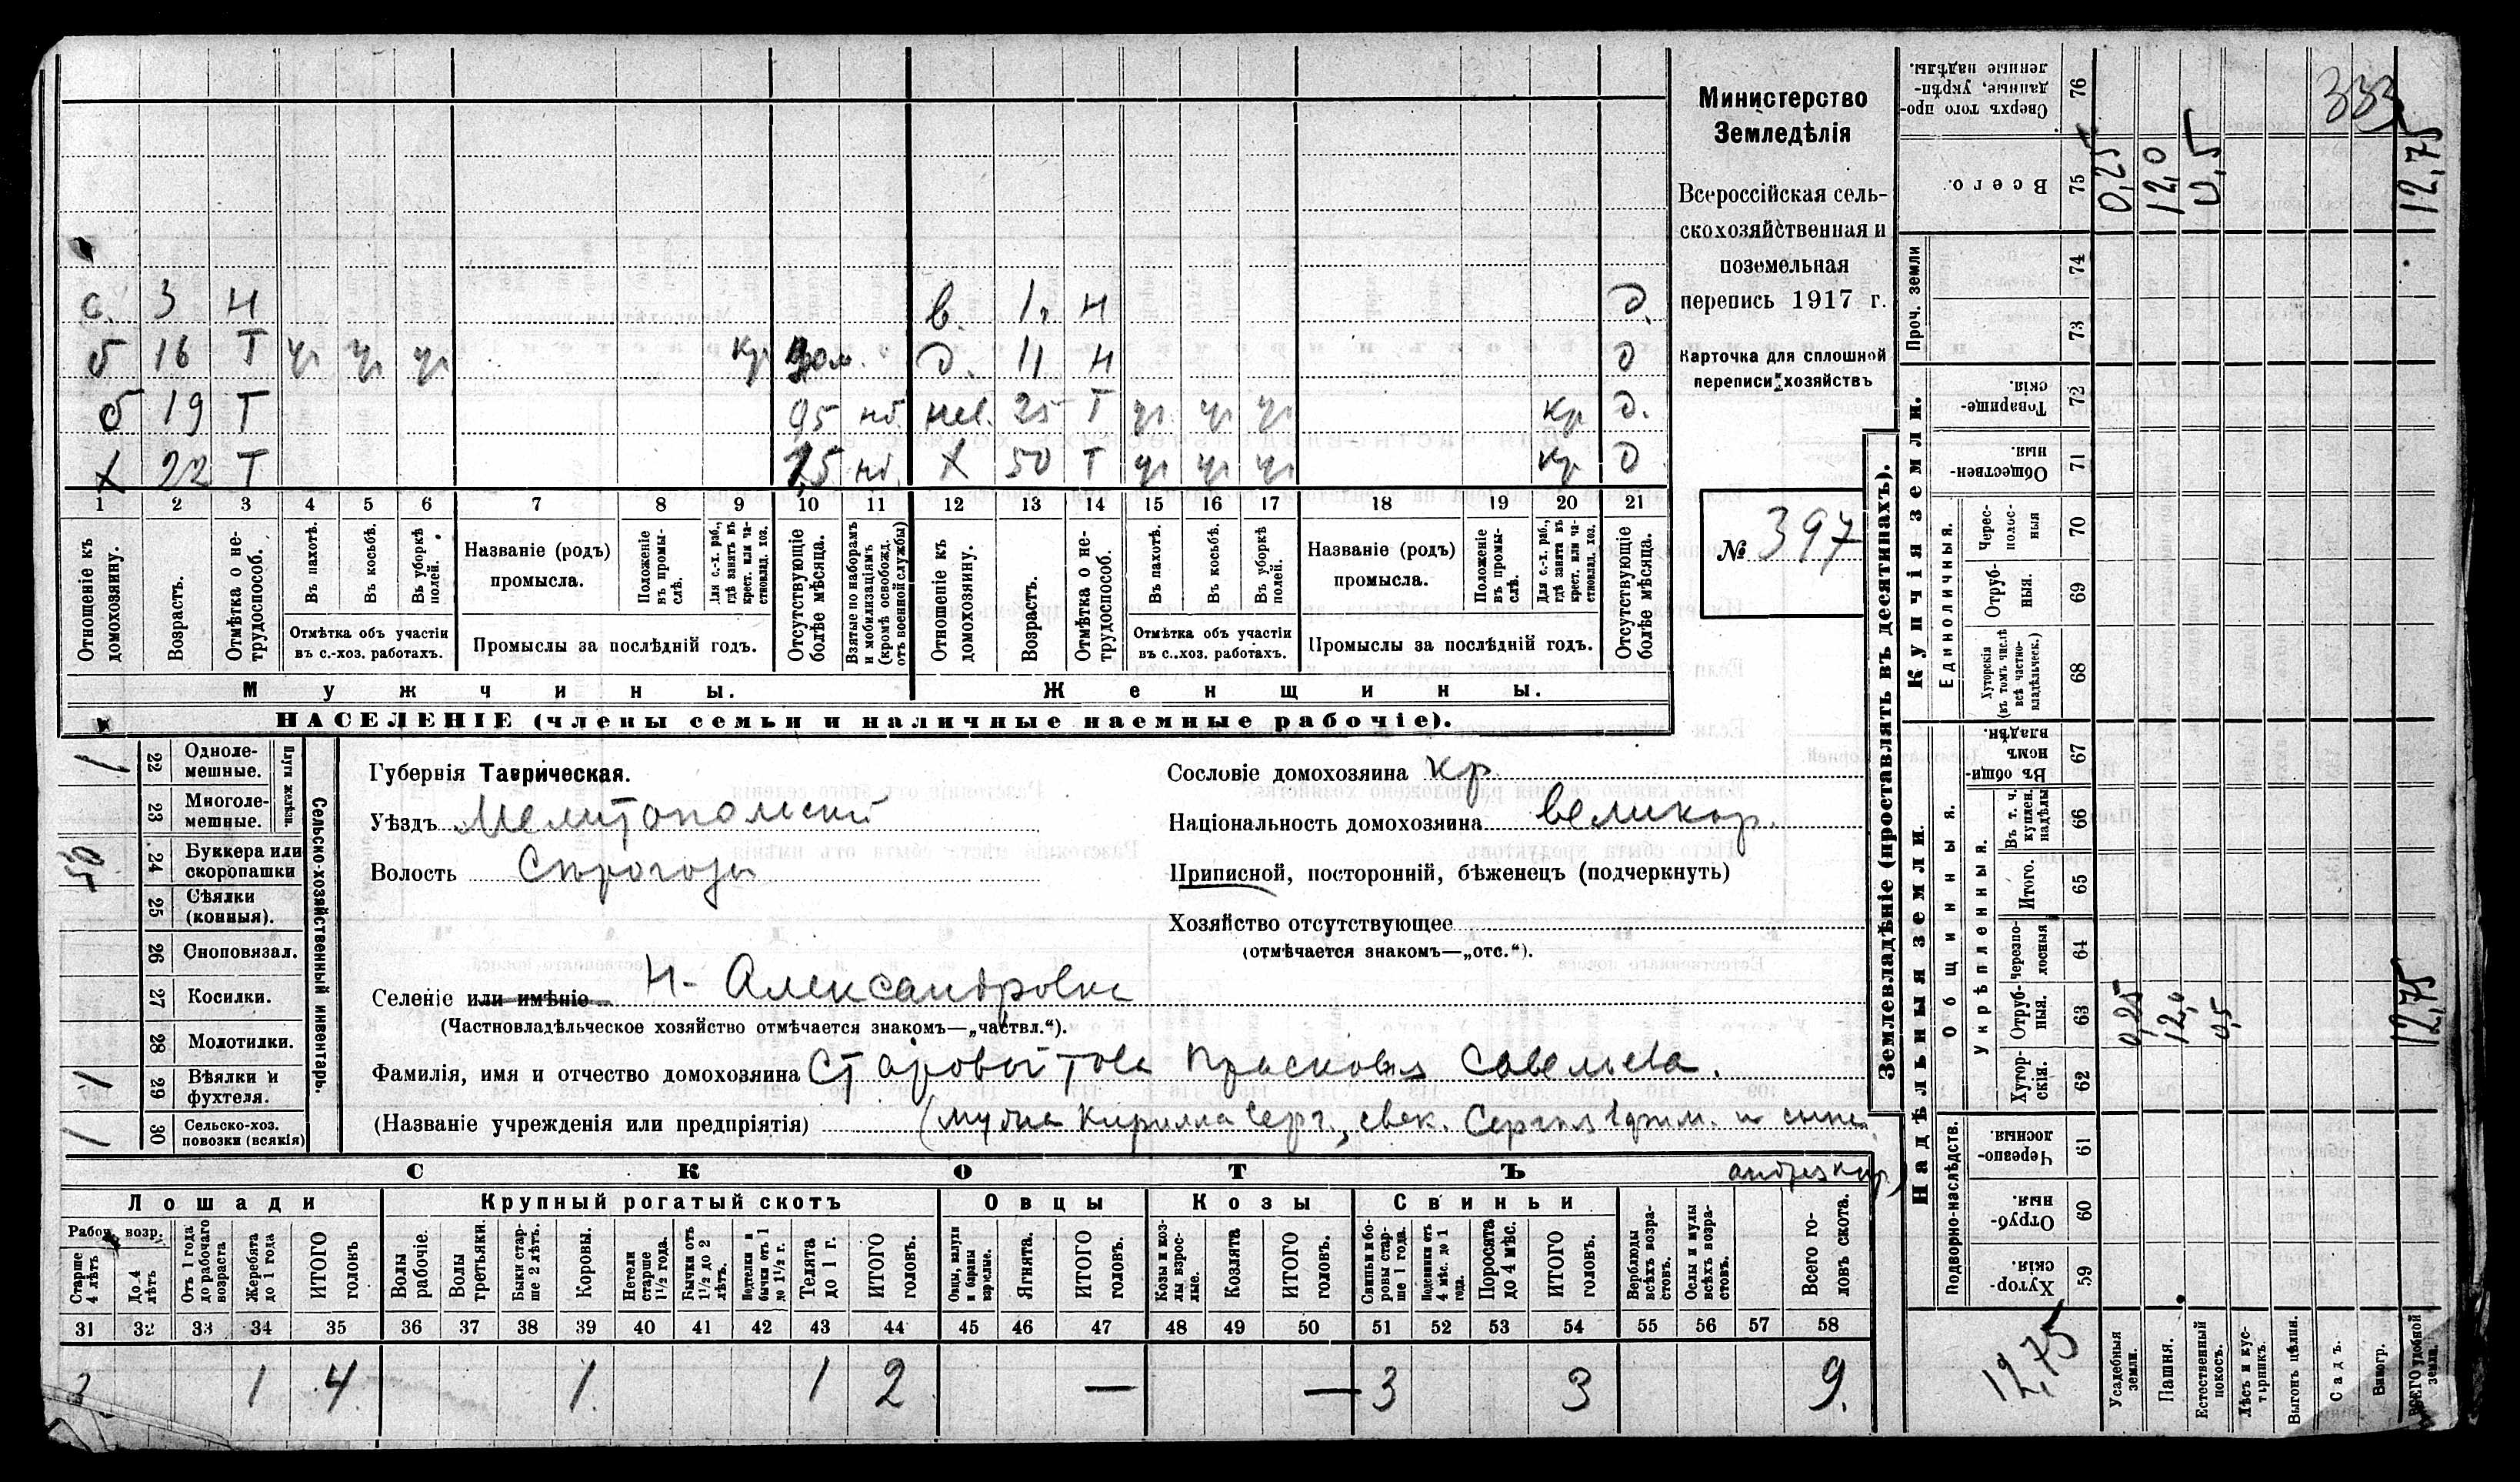 с. 3 Н в. 1. Н д.
б 16 Т уч уч уч кр дом. д. 11 Н д
б 19 Т 95 нб. нев. 25 Т уч уч уч кр д.
х 22 Т нб. х 50 Т уч уч уч кр д
1 2 3 4 5 6 7 8 9 10 11 12 13 14 15 16 17 18 19 20 21
Отношеніе къ домохозяину.
Возрастъ.
Отмѣтка о не-трудоспособ.
Въ пахотѣ.
Въ косьбѣ.
Въ уборкѣ полей.
Отмѣтка объ участіи
въ с.-хоз. работахъ.
Названіе (родъ)
промысла.
Положеніе въ промы-слѣ.
Для с.-х. раб., гдѣ занятъ въ крест. или ча-стновлад. хоз.
Промыслы за послѣдній годъ.
Отсутствующіе болѣе мѣсяца.
Взятые по наборамъ и мобилизаціямъ (кромѣ освобожд. отъ военной службы)
Отношеніе къ домохозяину.
Возрастъ.
Отмѣтка о не-трудоспособ.
Въ пахотѣ.
Въ косьбѣ.
Въ уборкѣ полей.
Отмѣтка объ участіи
въ с..хоз. работахъ.
Названіе (родъ)
промысла.
Положеніе въ промы-слѣ.
Для с.-х. раб., гдѣ занята въ крест. или ча-стновлад. хоз.
Промыслы за послѣдній годъ.
Отсутствующіе болѣе мѣсяца.
Мужчины. Женщины.
НАСЕЛЕНІЕ (члены семьи и наличные наемные рабочіе).
Министерство
Земледѣлія
Всероссійская сель-
скохозяйственная и
поземельная
перепись 1917 г.
Карточка для сплошной
переписи хозяйствъ
№ 397
1 22 Однолемешные.
23 Многолемешные.
Плуги желѣзн.
24 Буккера или скоропашки
25 Сѣялки (конныя).
26 Сноповязал.
27 Косилки.
28 Молотилки.
1 29 Вѣялки и фухтеля.
1 30 Сельско-хоз. повозки (всякія)
Сельско-хозяйственный инвентарь.
Губернія Таврическая.
Уѣздъ Мелитопольскій
Волость
Сословіе домохозяина кр.
Національность домохозяина великор.
Приписной, посторонній, бѣженецъ (подчеркнуть)
Хозяйство отсутствующее
(отмѣчается знакомъ—„отс.“).
Селеніе или имѣніе Н- Александровка
(Частновладѣльческое хозяйство отмѣчается знакомъ—„частвл.“).
Фамилія, имя и отчество домохозяина Старовойтова Прасковья Савельева.
(Названіе учрежденія или предпріятія) (мужа Кирилла Серг., свек. Сергѣя и сына
андрея кир.)
СКОТЪ
Лошади Крупный рогатый скотъ Овцы Козы Свиньи
Рабоч. возр.
Старше 4 лѣтъ
До 4 лѣтъ
Отъ 1 года до рабочаго возраста
Жеребята до 1 года
ИТОГО головъ
Волы рабочіе.
Волы третьяки.
Быки стар-ше 2 лѣтъ.
Коровы.
Нетели старше 1½ года.
Бычки отъ 1½ до 2 лѣтъ.
Подтелки и бычки отъ 1 до 1½ г.
Телята до 1 г.
ИТОГО головъ.
Овцы, валухи и бараны взрослые.
Ягнята.
ИТОГО головъ.
Козы и коз-лы взрос-лые.
Козлята
ИТОГО головъ.
Свиньи и бо-ровы стар-ше 1 года.
Подсвинки отъ 4 мѣс. до 1 года.
Поросята до 4 мѣс.
ИТОГО головъ.
Верблюды всѣхъ возра-стовъ.
Ослы и мулы всѣхъ возра-стовъ.
Всего го-ловъ скота.
31 32 33 34 35 36 37 38 39 40 41 42 43 44 45 46 47 48 49 50 51 52 53 54 55 56 57 58
3 1 4 1 1 2 — — 3 3 9.
Землевладѣніе (проставлять въ десятинахъ).
Надѣльныя земли. Купчія земли. Проч. земли
Подворно-наслѣдств.
59 Хутор-скія.
60 Отруб-ныя.
61 Черезпо-лосныя.
Общинныя.
Укрѣпленныя.
62 Хутор-скія.
63 Отруб-ныя. 0,25 12,0 0,5 12,75
64 Черезпо-лосныя
65 Итого.
66 Въ т. ч. куплен. надѣлы
67 Въ общин-номъ владѣн.
Единоличныя.
68 Хуторскія (въ томъ числѣ всѣ частно-владѣльческ.)
69 Отруб-ныя.
70 Черес-полос-ныя
71 Обществен-ныя
72 Товарище-скія.
73
74
75 Всего. 0,25 12,0 0,5 12,75
76 Сверхъ того про-данные, укрѣп-ленные надѣлы.
333
12,75
Усадебныя земли.
Пашня.
Естественный покосъ.
Лѣсъ и кус-тарникъ.
Выгонъ цѣлин.
Садъ.
Виногр.
ВСЕГО удобной земли.